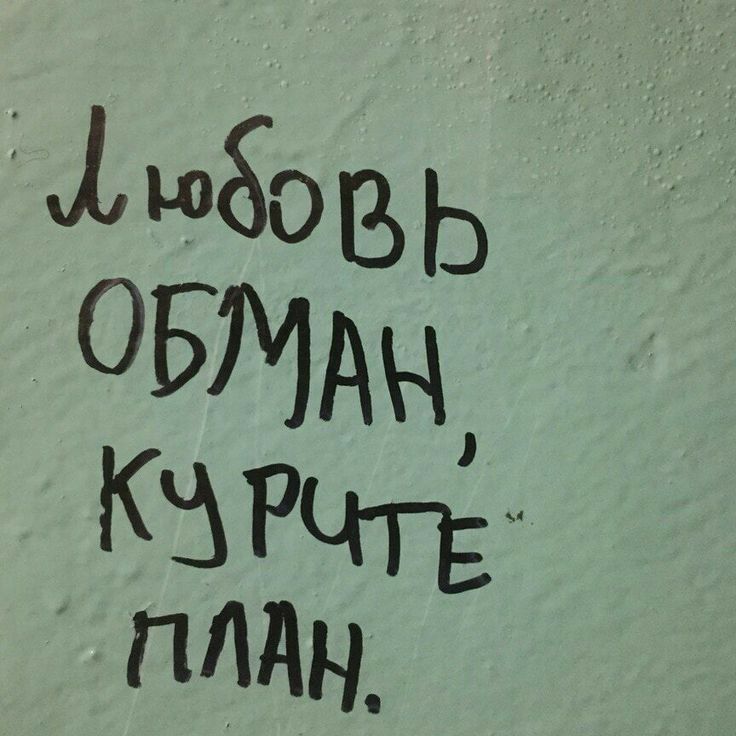 Любовь
ОБМАН,
КУРИТЕ
ПЛАН.